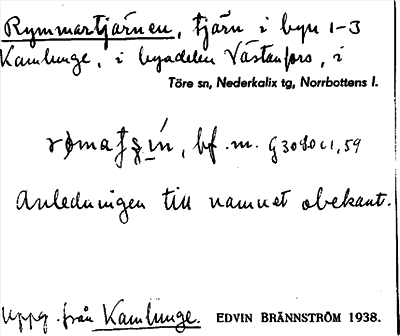 Rymmartjärnen, tjärn i byn 1-3
Kamlunge, i byadelen Västanfors, i
Töre sn, Nederkalix tg, Norrbottens l.
bf. m.
Anledningen till namnet obekant.
Uppg. från Kamlunge. EDVIN BRÄNNSTRÖM 1938.